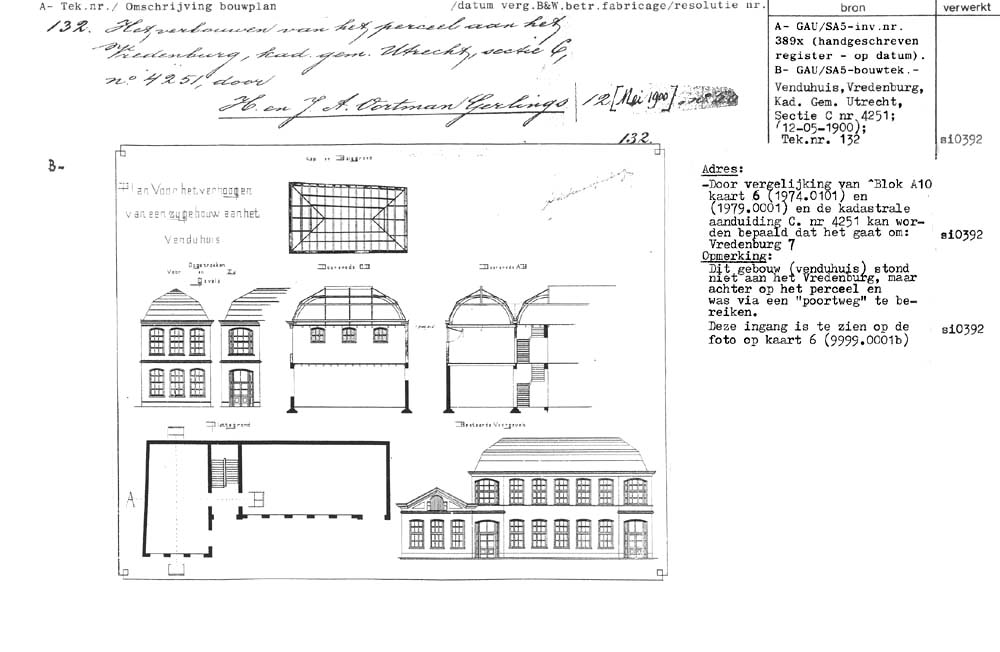 A- Tek.nr./ Omschrijving bouwplan /datum verg.B&W.betr.fabricage/resolutie nr.
bron
verwerkt
132. Het verbouwen van het perceel aan het
Vredenburg, kad. gem. Utrecht, sectie C,
no 4251, door
H. en J A. Oortman Gerlings 12 [Mei 1900]
A- GAU/SA5-inv.nr.
389x (handgeschreven
register - op datum).
B- GAU/SA5-bouwtek.-
Venduhuis, Vredenburg,
Kad. Gem. Utrecht,
Sectie C nr 4251;
(12-05-1900);
Tek.nr. 132
si0392
B-
132.
Plan Voor het verhoogen
van een zijgebouw aan het
Venduhuis
Voor en
Gevels
Doorsnede
Doorsnede
Plattegrond
Bestaande Voorgevel
A
Adres:
-Door vergelijking van "Blok A10
kaart 6 (1974.0101) en
(1979.0001) en de kadastrale
aanduiding C. nr 4251 kan wor-
den bepaald dat het gaat om:
Vredenburg 7
si0392
Opmerking:
Dit gebouw (venduhuis) stond
niet aan het Vredenburg, maar
achter op het perceel en
was via een "poortweg" te be-
reiken.
Deze ingang is te zien op de
foto op kaart 6 (9999.0001b)
si0392